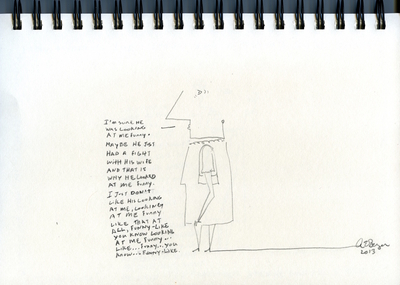 I'm sure he
was looking
at me funny.
Maybe he jst
had a fight
with his wife
and that is
why he looked
at me funny.
I just don't
like his looking
at me, looking
at me funny
like that at
all, funny-like
you know looking
at me funny...
like...funny...you
know...funny-like.
2013